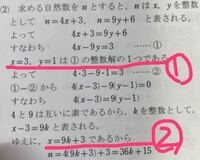 (2) 求める自然数をnとすると，nはx，yを整数
として n=4x+3， n=9y+6 と表される。
よって 4x+3=9y+6
すなわち 4x−9y=3 ……①
x=3，y=1は①の整数解の1つである
よって 4・3−9・1=3 ……②
①−②から 4(x−3)−9(y−1)=0
すなわち 4(x−3)=9(y−1)
4と9は互いに素であるから，kを整数として，
x−3=9kと表される。
ゆえに，x=9k+3であるから
n=4(9k+3)+3=36k+15
①
②